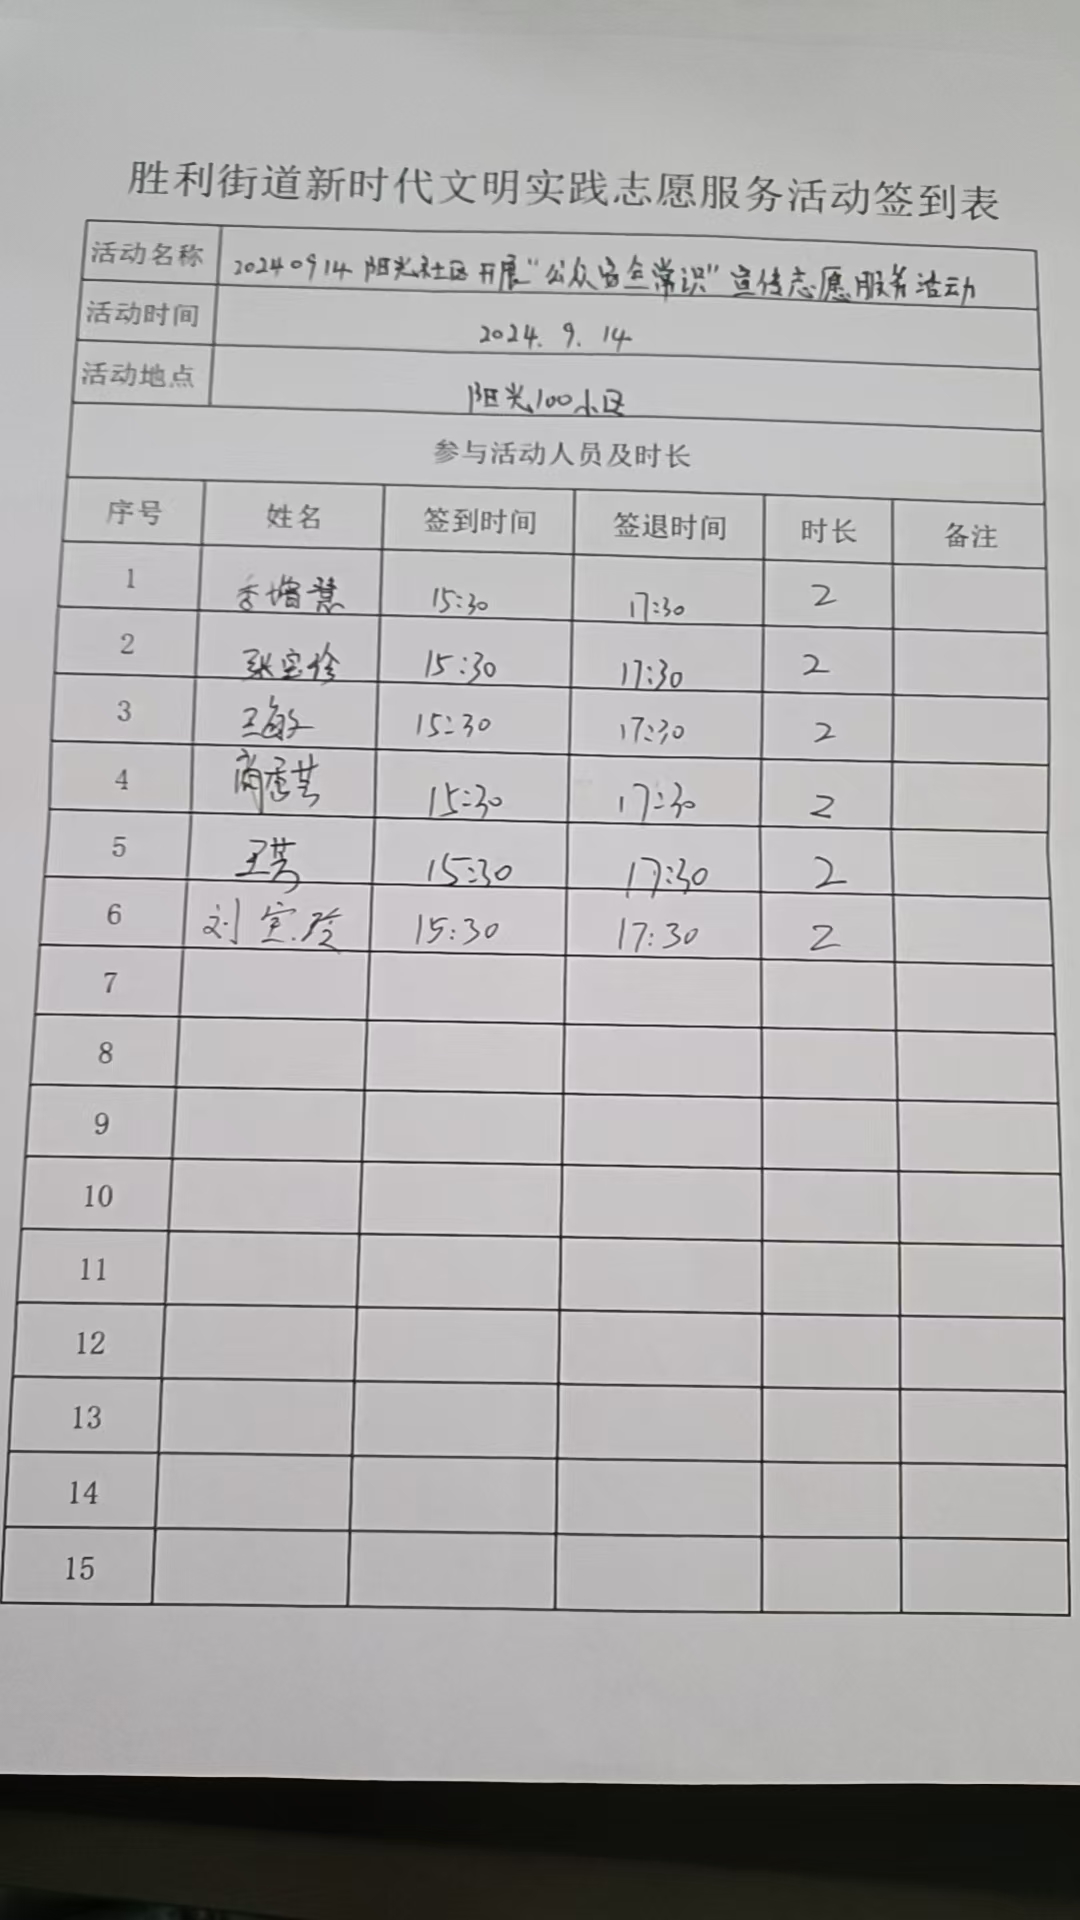 胜利街道新时代文明实践志愿服务活动签到表
活动名称 20240914 阳光社区开展“公众安全常识”宣传志愿服务活动
活动时间 2024.9.14
活动地点 阳光100小区
参与活动人员及时长
序号 姓名 签到时间 签退时间 时长 备注
1 15:30 17:30 2
2 15:30 17:30 2
3 王敏 15:30 17:30 2
4 15:30 17:30 2
5 15:30 17:30 2
6 刘宝玲 15:30 17:30 2
7
8
9
10
11
12
13
14
15